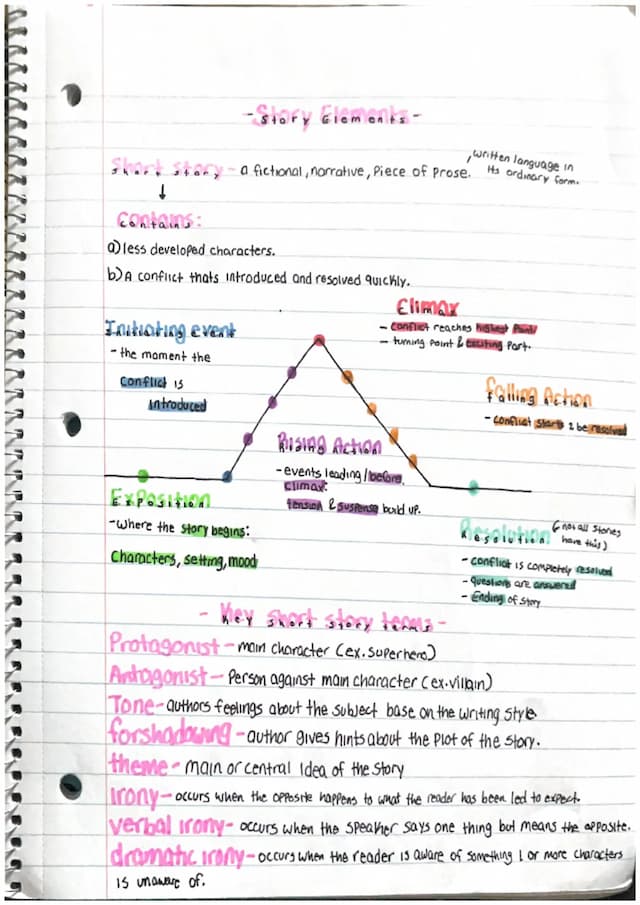 -Story Elements-
Short Story - a fictional, narrative, piece of prose.
, written language in
its ordinary form.
↓
Contains:
a) less developed characters.
b) A conflict thats introduced and resolved quickly.
Climax
- conflict reaches highest point
- turning point & exciting part.
Initiating event
- the moment the
conflict is
introduced
falling Action
- conflict starts 2 be resolved
Rising Action
- events leading/before,
climax:
tension & suspense build up.
Exposition
- Where the story begins:
Characters, setting, mood
Resolution
(not all stories
have this)
- conflict is completely resolved
- questions are answered
- Ending of story
- Key short story terms -
Protagonist - main character (ex. superhero)
Antagonist - Person against main character (ex. villain)
Tone - authors feelings about the subject base on the writing style
forshadowing - author gives hints about the plot of the story.
theme - main or central idea of the story
Irony - occurs when the opposite happens to what the reader has been led to expect.
verbal irony - occurs when the speaker says one thing but means the opposite.
dramatic irony - occurs when the reader is aware of something 1 or more characters
is unaware of.